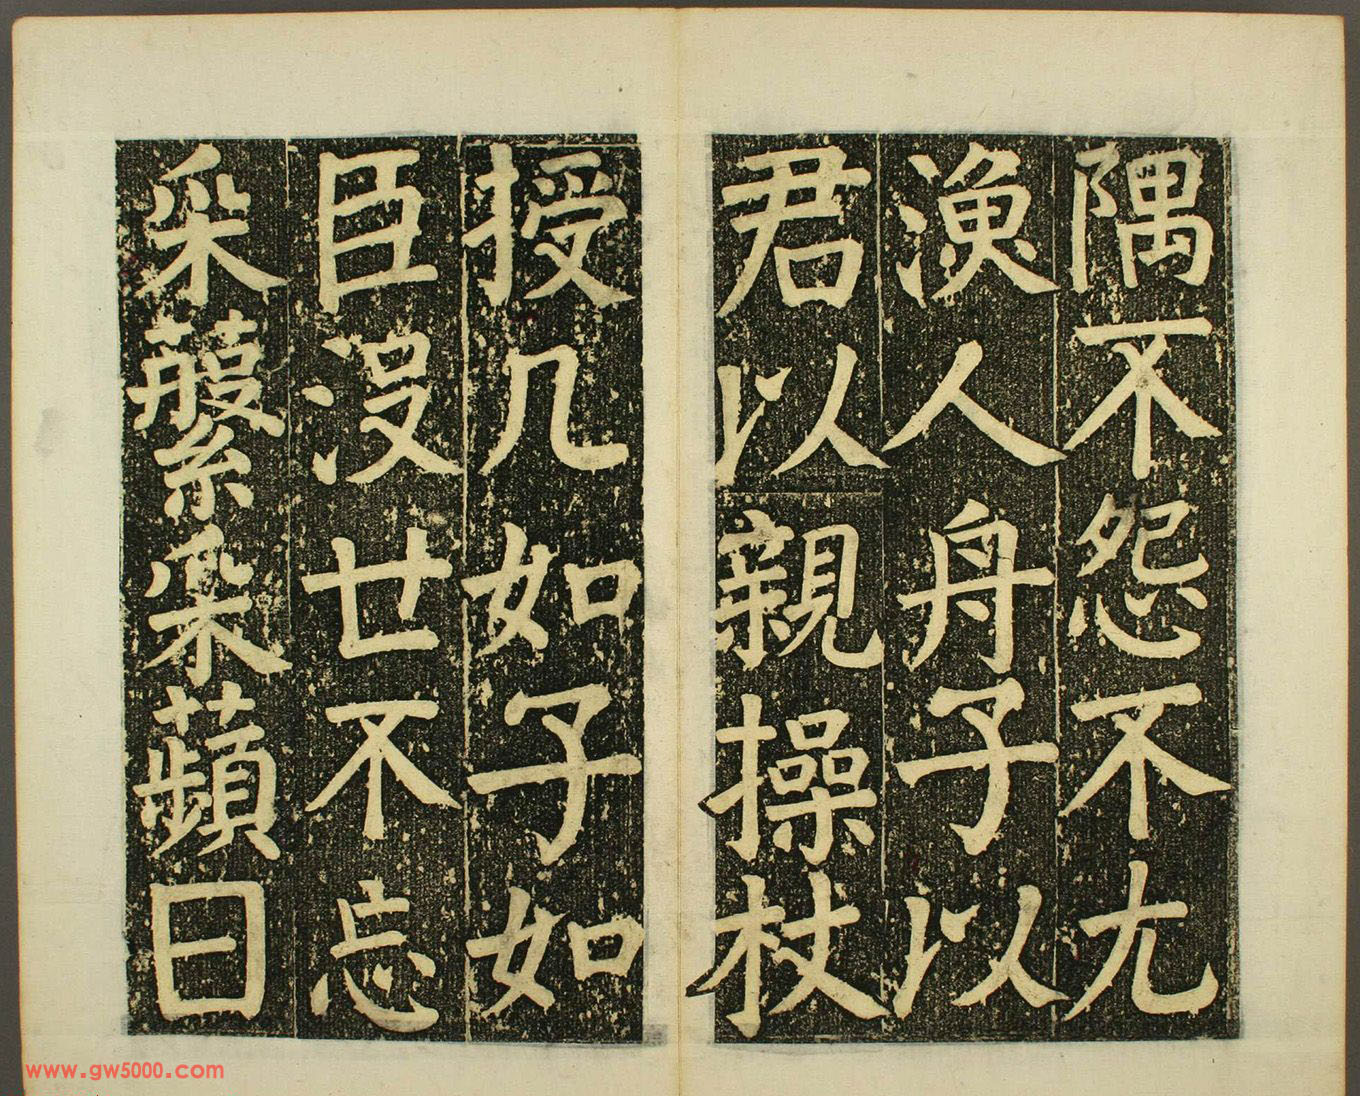 隅不怨不尤
漁人舟子以
君以親操杖
授几如子如
臣沒廿不忘
采蘩采蘋曰
www.gw5000.com